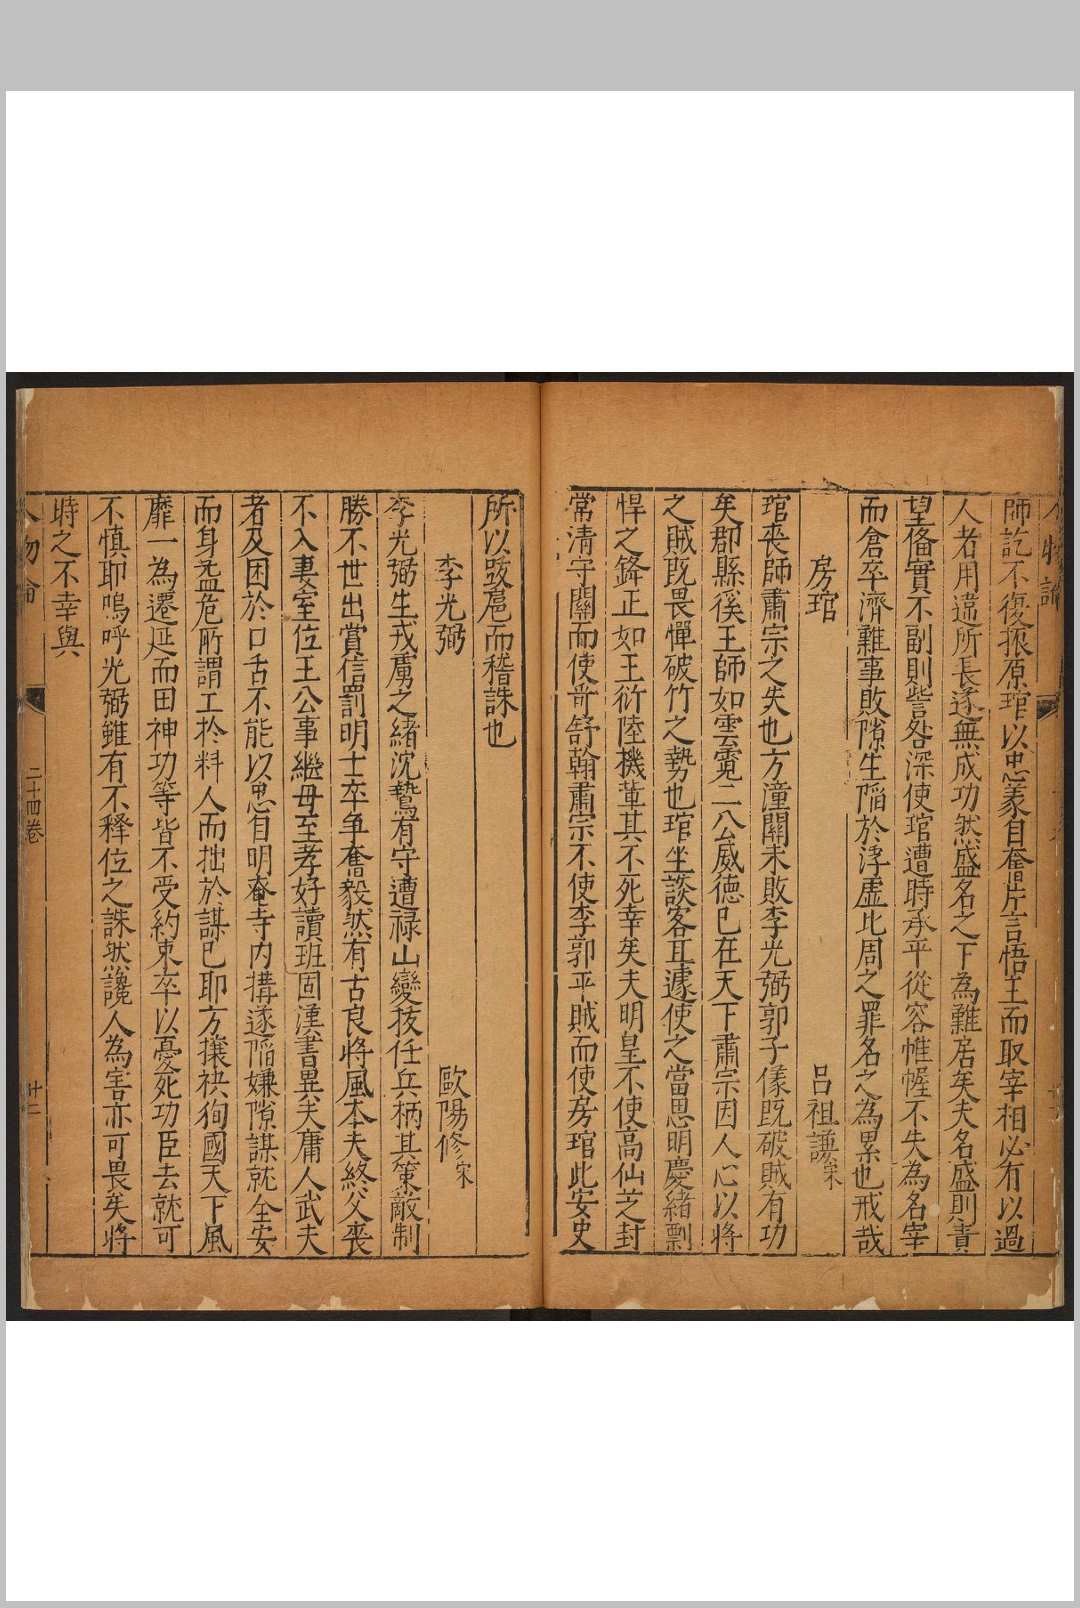 人物論
師訖不復振原琯以忠義自奮片言悟主而取宰相必有以過
人者用違所長遂無成功然盛名之下為難居矣夫名盛則責
望備實不副則訾咎深使琯遭時承平從容帷幄不失為名宰
而倉卒濟難事敗隙生陷於浮虛比周之罪名之為累也戒哉
房琯 呂祖謙宋
琯喪師肅宗之失也方潼關未敗李光弼郭子儀既破賊有功
矣郡縣徯王師如雲霓二公威德已在天下肅宗因人心以將
之賊既畏憚破竹之勢也琯坐談客耳遽使之當思明慶緒剽
悍之鋒正如王衍陸機輩其不死幸矣夫明皇不使高仙芝封
常清守關而使哥舒翰肅宗不使李郭平賊而使房琯此安史
所以跋扈而稽誅也
李光弼 歐陽修宋
李光弼生戎虜之緒沈鷙有守遭祿山變拔任兵柄其策敵制
勝不世出賞信罰明士卒爭奮毅然有古良將風本夫終父喪
不入妻室位王公事繼母至孝好讀班固漢書異夫庸人武夫
者及困於口舌不能以忠自明奄寺內搆遂陷嫌隙謀就全安
而身益危所謂工於料人而拙於謀己耶方攘袂狥國天下風
靡一為遷延而田神功等皆不受約束卒以憂死功臣去就可
不慎耶嗚呼光弼雖有不釋位之誅然讒人為害亦可畏矣將
時之不幸與
人物論
二十四卷
廿二